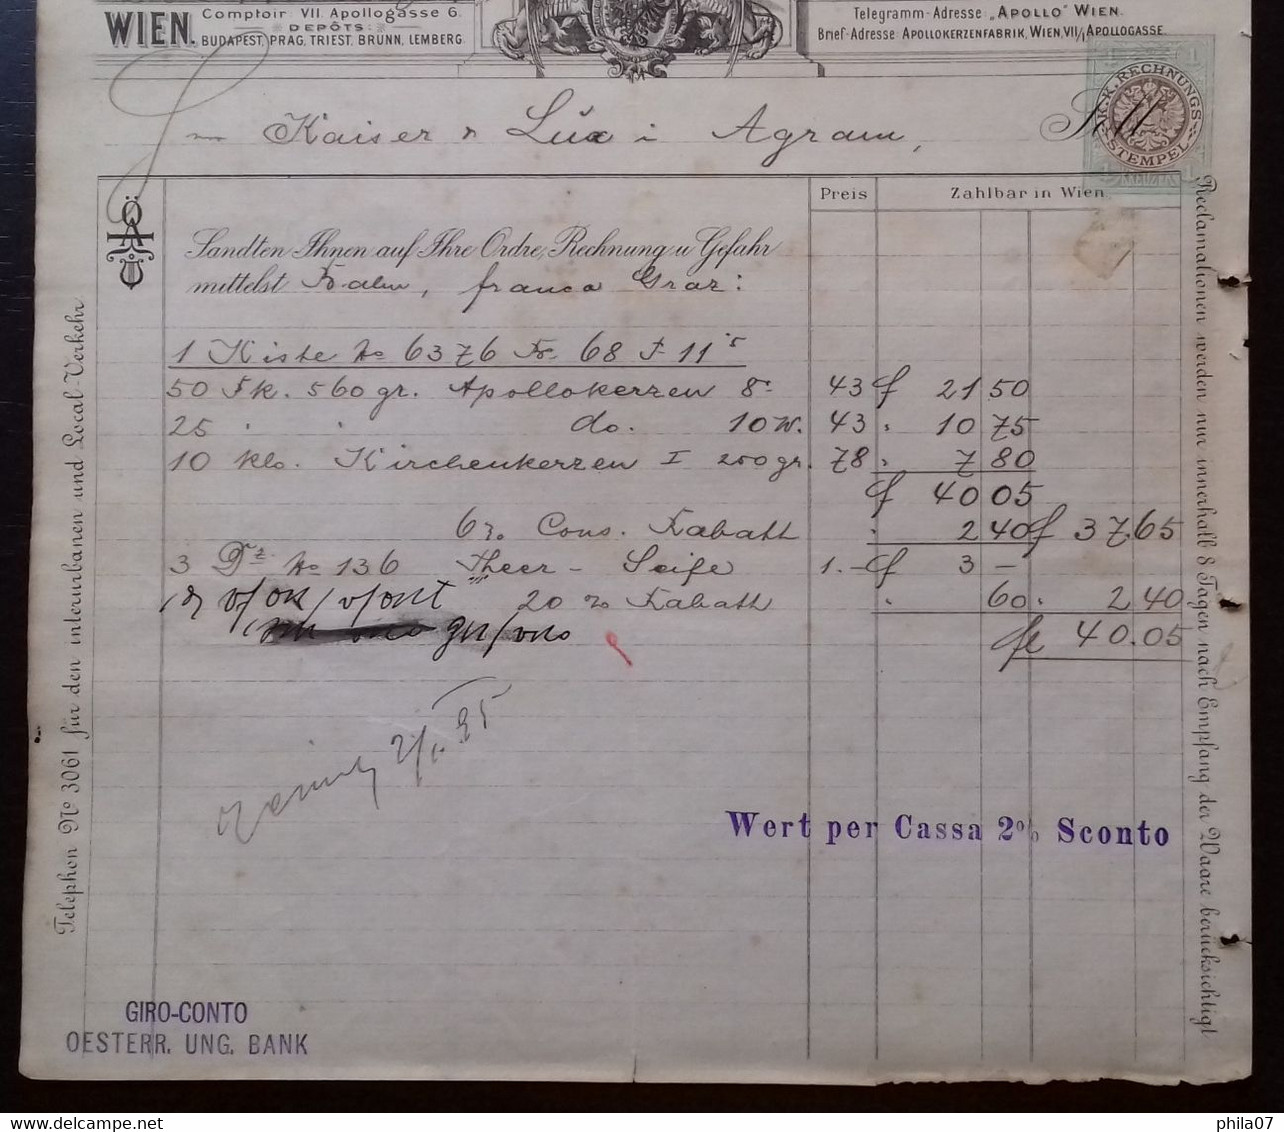 WIEN.
Comptoir VII. Apollogasse 6.
DEPÔTS:
BUDAPEST, PRAG, TRIEST, BRÜNN, LEMBERG.
Telegramm-Adresse: „APOLLO" WIEN.
Brief-Adresse: APOLLOKERZENFABRIK, WIEN, VII/1 APOLLOGASSE.
K.K. RECHNUNGS
STEMPEL
1 KREUZER 1
Kaiser & Lux i Agram,
Preis Zahlbar in Wien
Sandten Ihnen auf Ihre Ordre, Rechnung u. Gefahr
mittelst Bahn, franco Graz:
1 Kiste No 6376 Bo. 68 T 11 5
50 Pk. 560 gr. Apollokerzen 8r 43 f 21 50
25 " " do. 10 W. 43 " 10 75
10 klo. Kirchenkerzen I 200 gr. 78 " 7 80
f 40 05
6% Cons. Rabatt " 2 40 f 37.65
3 Dz No 136 Theer - Seife 1.- f 3 -
20% Rabatt " 60 " 2 40
f 40.05
2/1. 95
Wert per Cassa 2% Sconto
Telephon No 3061 für den interurbanen und Local-Verkehr
Reclamationen werden nur innerhalb 8 Tagen nach Empfang der Waare berücksichtigt
GIRO-CONTO
OESTERR. UNG. BANK
phila07